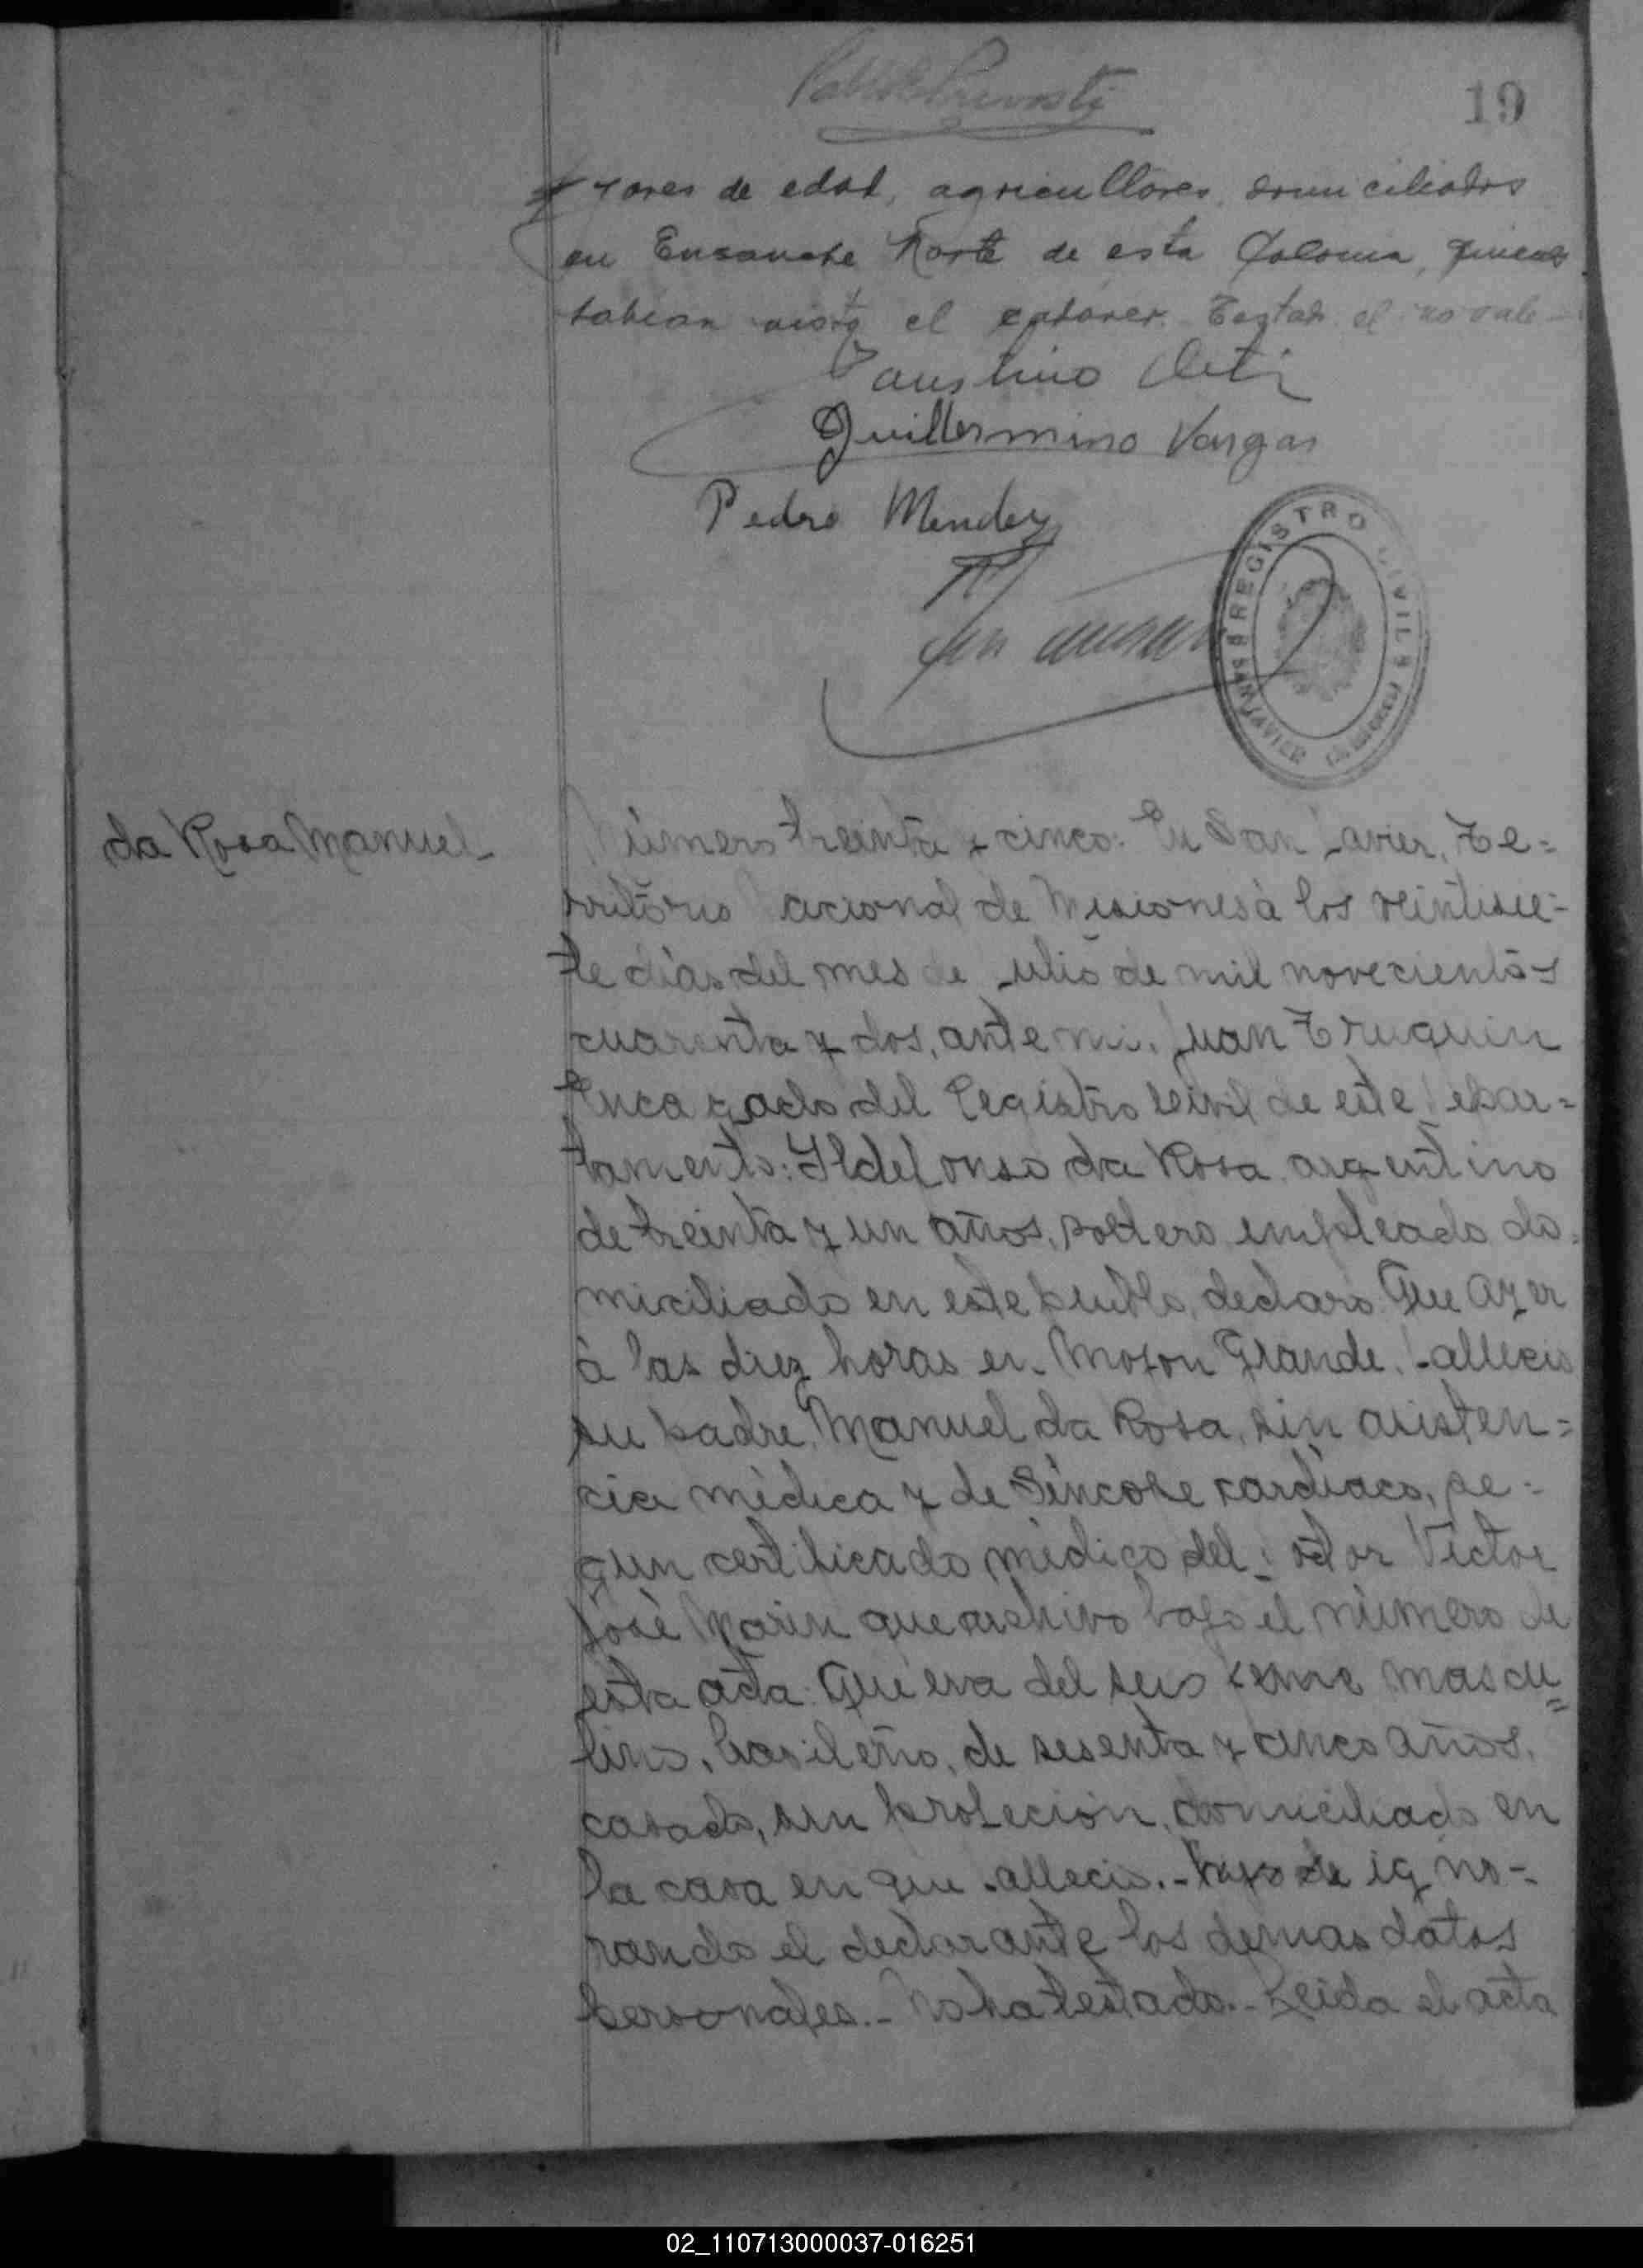 19
yores de edad, agricultores domiciliados
en Ensanche Norte de esta Colonia, quienes
habian visto el cadaver. Testado el no vale
Faustino
Guillermino Vargas
Pedro Mendez
REGISTRO CIVIL
SAN JAVIER
da Rosa Manuel
Número treinta y cinco: En San Javier, Te=
rritorio Nacional de Misiones á los veintisie=
te dias del mes de Julio de mil novecientos
cuarenta y dos, ante mi, Juan Truquin
Encargado del Registro Civil de este Depar=
tamento: Ildefonso da Rosa, argentino
de treinta y un años, soltero empleado do=
miciliado en este pueblo, declaro: Que ayer
á las diez horas en Mojon Grande, fallecio
su padre Manuel da Rosa, sin asisten=
cia médica y de Síncope cardíaco, se=
gun certificado médico del Doctor Victor
José Marin que archivo bajo el número de
esta acta: Que era del sexo mascu=
lino, brasileño, de sesenta y cinco años,
casado, sin profeción, domiciliado en
la casa en que fallecio.- hijo de igno-
rando el declarante los demas datos
personales.- No ha testado.- Leida el acta
02_110713000037-016251